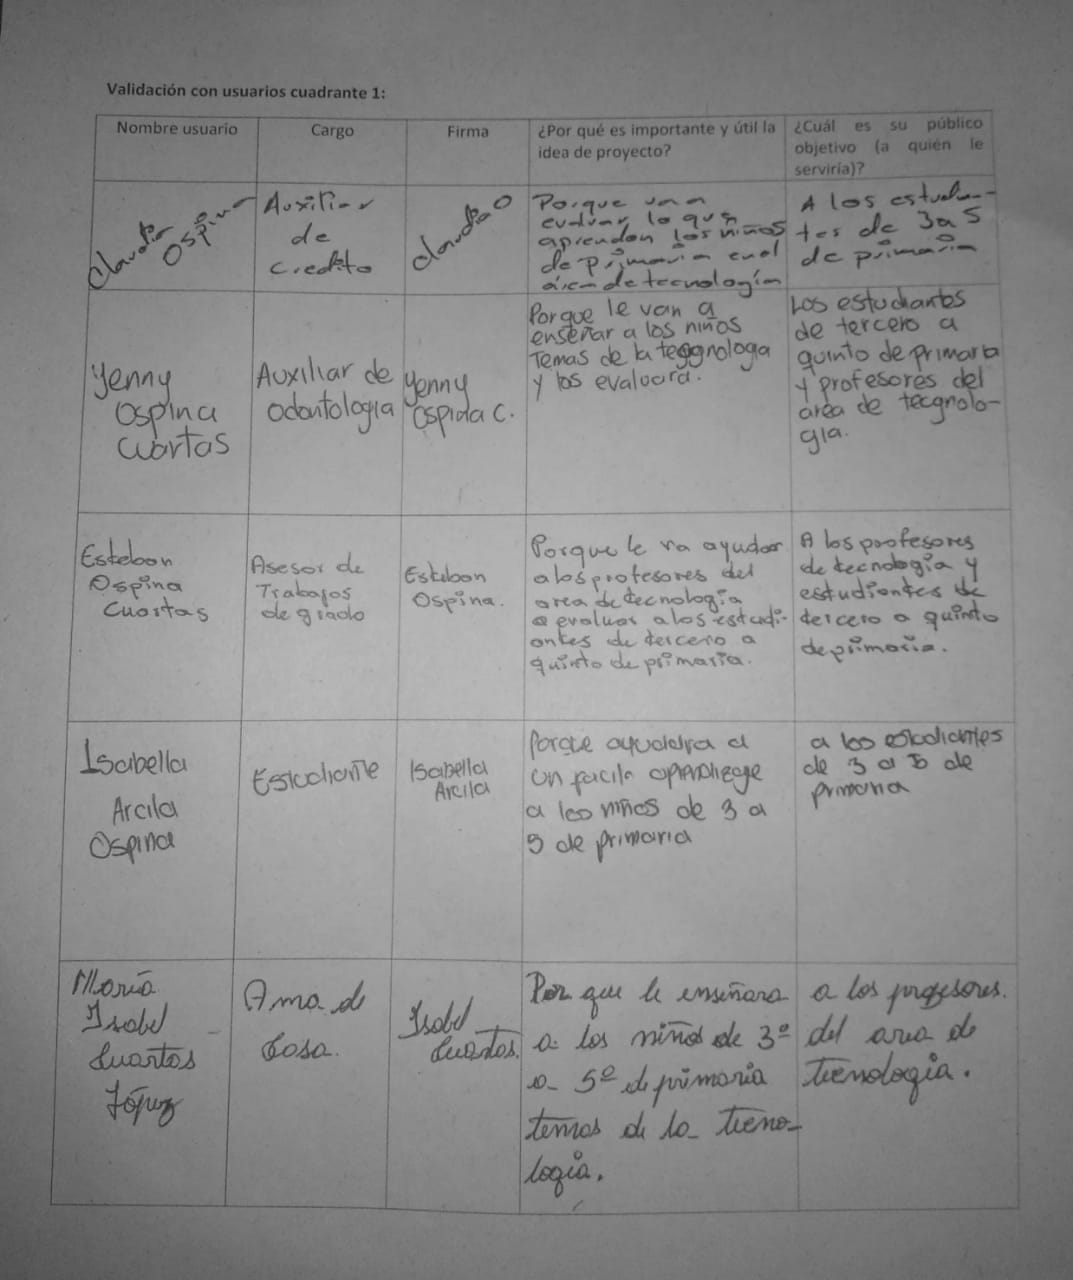 Validación con usuarios cuadrante 1:
Nombre usuario
Cargo
Firma
¿Por qué es importante y útil la
idea de proyecto?
¿Cuál es su público
objetivo (a quién le
serviría)?
Claudia
Ospina
Auxiliar
de
credito
Claudia O
Porque van a
evaluar lo que
aprendan los niños
de primaria en el
área de tecnología
A los estudian-
tes de 3 a 5
de primaria
Yenny
Ospina
Cuartas
Auxiliar de
odontologia
Yenny
Ospina C.
Porque le van a
enseñar a los niños
Temas de la
y los evaluara.
Los estudiantes
de tercero a
quinto de primaria
y profesores del
area de tecgnolo-
gia.
Esteban
Ospina
Cuartas
Asesor de
Trabajos
de grado
Esteban
Ospina.
Porque le va ayudar
a los profesores del
area de tecnología
a evaluar a los estudi-
antes de tercero a
quinto de primaria.
A los profesores
de tecnología y
estudiantes de
tercero a quinto
de primaria.
Isabella
Arcila
Ospina
Estudiante
Isabella
Arcila
Porque ayudara a
un facil
a los niños de 3 a
5 de primaria
a los estudiantes
de 3 a 5 de
primaria
María
Isabel
Cuartas
López
Ama de
Casa.
Isabel
Cuartas.
Por que le enseñara
a los niños de 3º
a 5º de primaria
temas de la tecno-
logia.
a los profesores.
del area de
tecnologia.